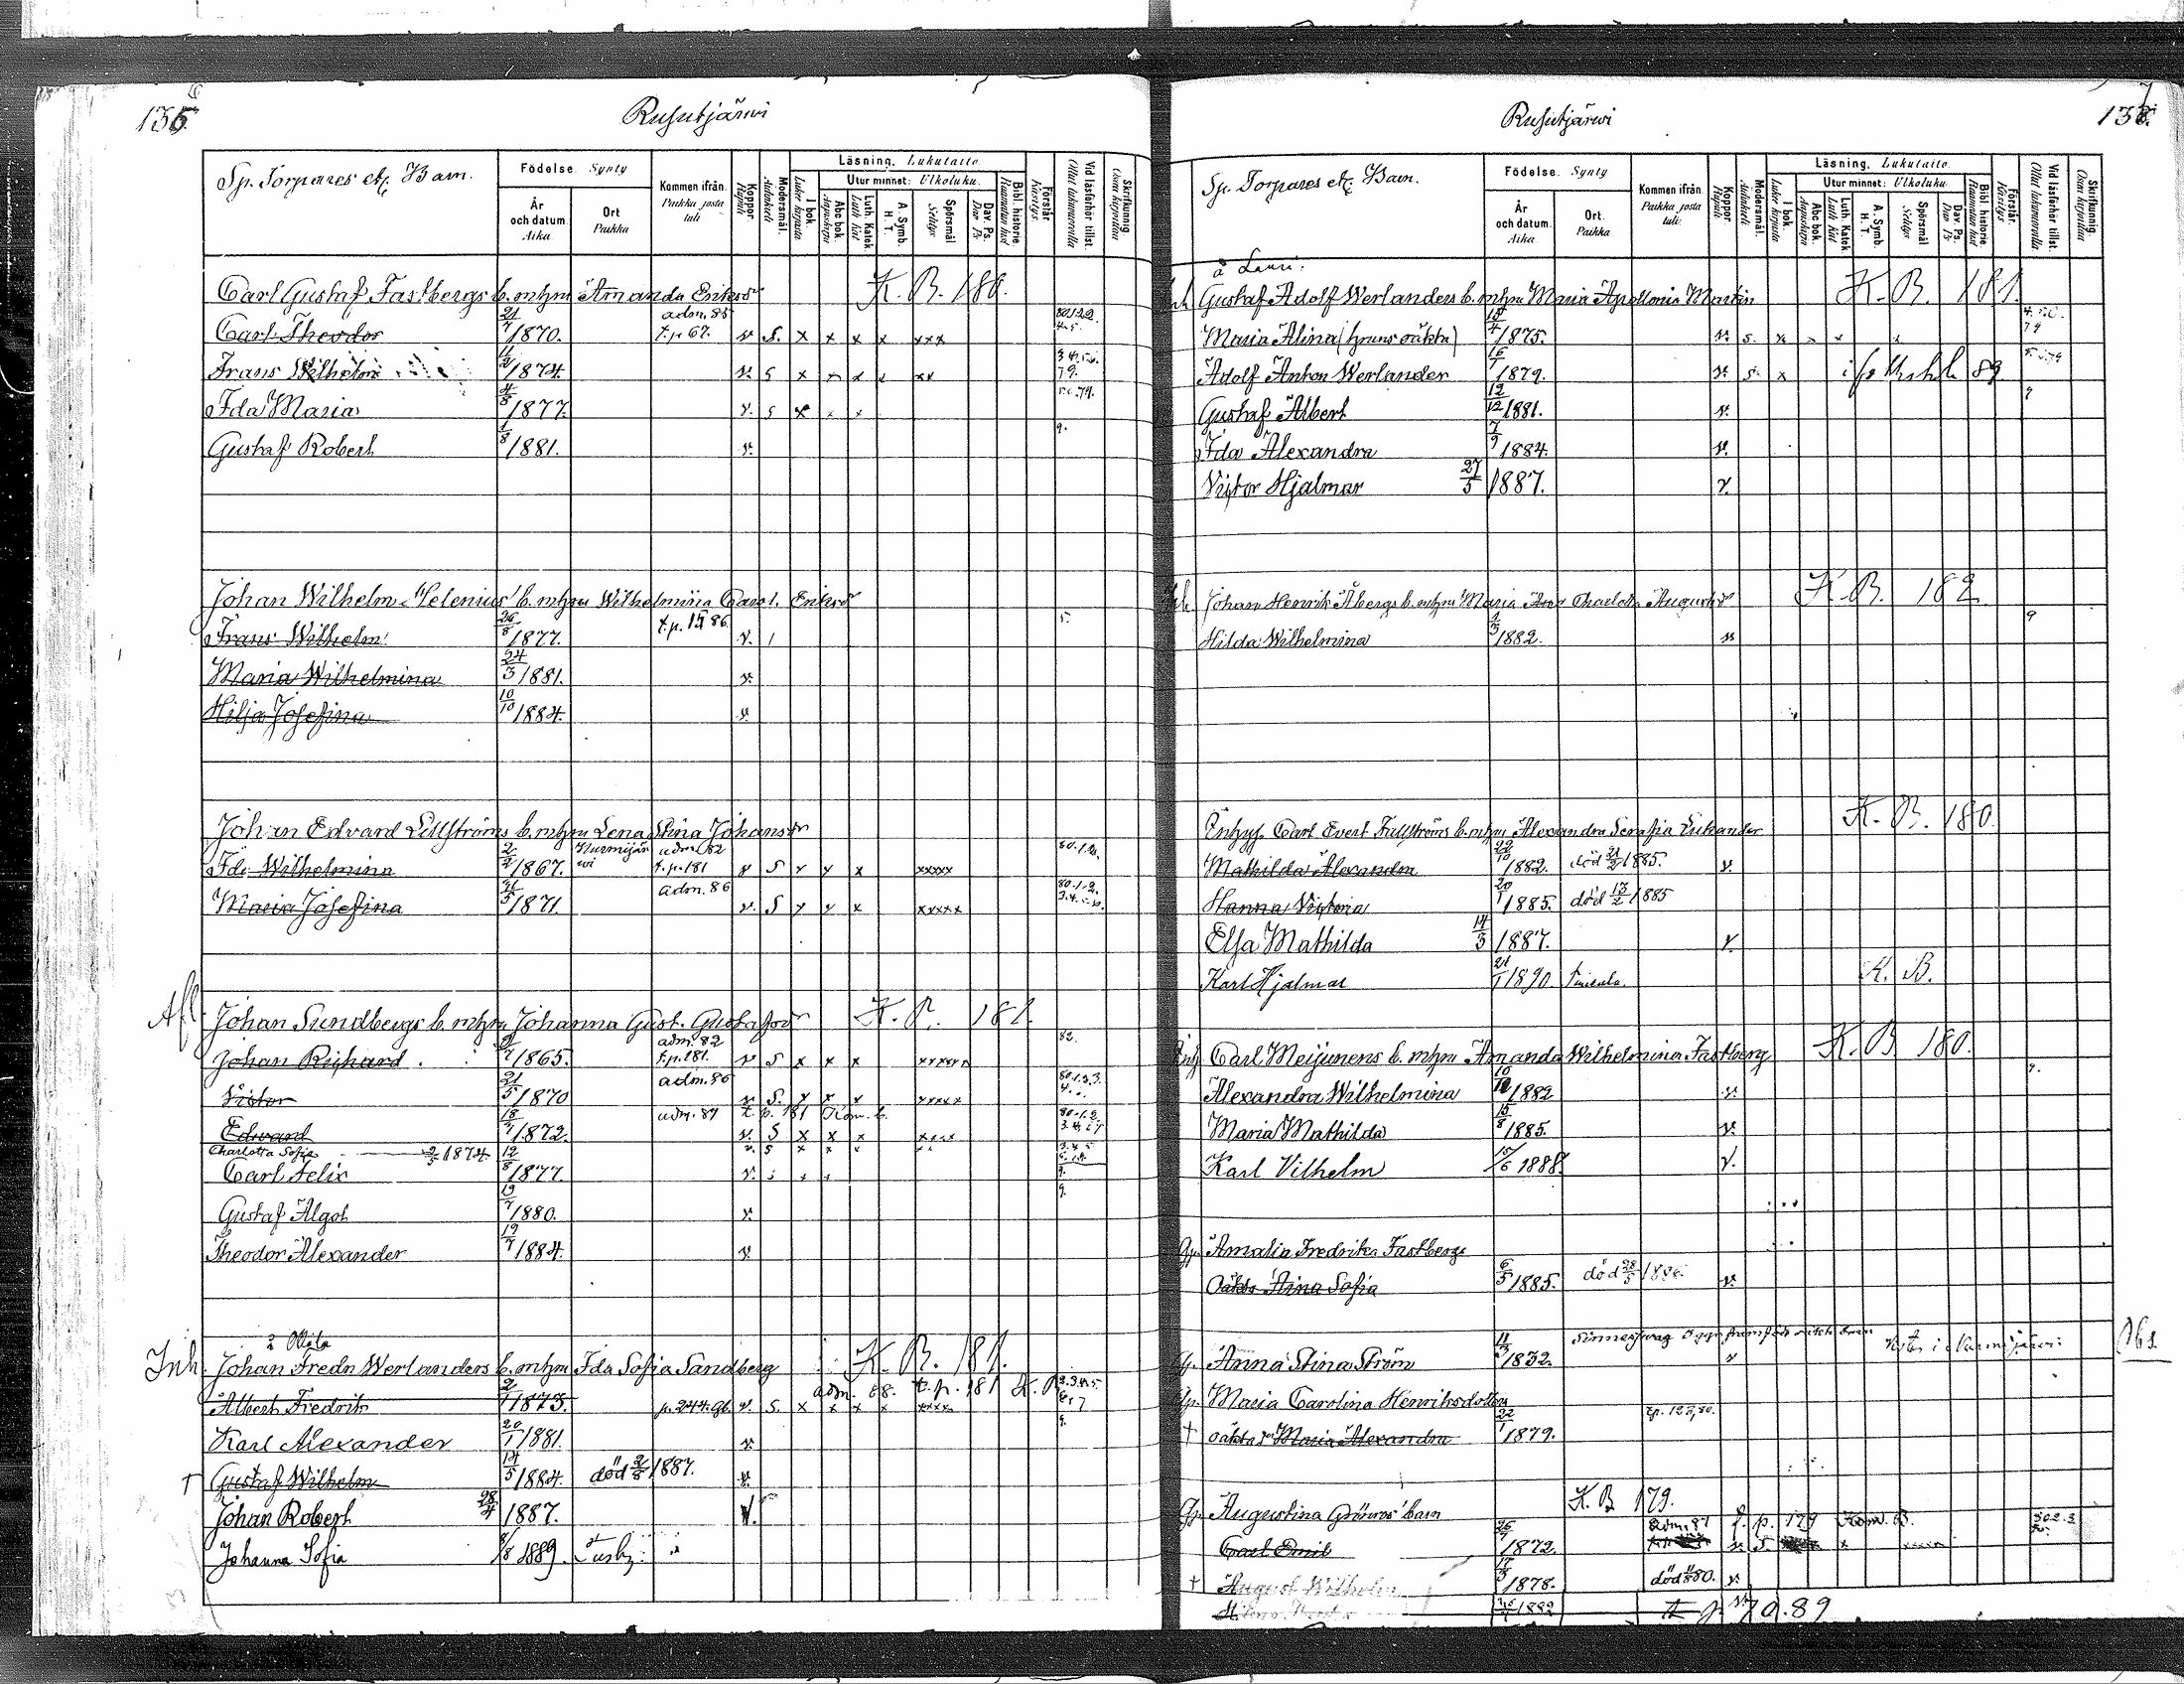 136
Rusutjärwi
Sp. Torpares etc Barn.
Födelse Synty
År och datum. Aika
Ort Paikka
Kommen ifrån. Paikka josta tuli
Koppor. Rupuli
Modersmål. Äidinkieli
Läsning. Lukutaito
I bok. Lukee kirjasta
Utur minnet: Ulkoluku
Abc bok. Aapiskirja
Luth. Katek. Luth Kat
A. Symb. H. T.
Spörsmål Selitys
Dav. Ps. Dav Ps
Bibl. historie.
Förstår. Käsitys
Vid läsförhör tillst. Ollut lukuluvuilla
Skrifkunnig. Osaa kirjoittaa
Carl Gustaf Fastbergs b. m hm Amanda Eriksdr K. B. 180.
Carl Theodor 21/7 1870. adm. 85 t. p 67. v. S. x x x x xxx 80.1.2.2. 4.5.
Frans Wilhelm 11/2 1874. v. S x x x x xx 3.4.5.6. 7.9.
Ida Maria 4/8 1877. v. S x x x 5.6.7.9.
Gustaf Robert 1/8 1881. v. 9.
Johan Wilhelm Helenius' b. m hm Wilhelmina Carol. Eriksdr
Frans Wilhelm 26/8 1877. t. p. 15 86 v. 1 5.
Maria Wilhelmina 24/3 1881. v.
Hilja Josefina 10/10 1884. v.
Johan Edvard Lillströms b. m hm Lena Stina Johansdr
Ida Wilhelmina 2/2 1867. Nurmijärwi adm. 82 t. p. 181 v S x x x xxxxx 80.1.2.
Maria Josefina 21/3 1871. adm. 86 v. S x x x xxxxx 80.1.2. 3.4.5.
Afl. Johan Sundbergs b. m hm Johanna Gust. Gustafsdr K. B. 181.
Johan Richard 1865. adm. 82 t. p. 181. v S x x x xxxxx 82.
Victor 21/5 1870 adm. 86 v. S. x x x xxxxx 80.1.2.3. 4.
Edvard 18/7 1872. adm. 87 t. p. 181 Kom. b. v. S x x x xxxx 80.1.2. 3.4.
Charlotta Sofia 2/5 1874. v. S x x x xx 3.4.5
Carl Felix 12/8 1877. v. x x 9.
Gustaf Algot 19/7 1880. v. 9.
Theodor Alexander 19/7 1884. v.
Inh. Johan Fredr Werlanders b. m hm Ida Sofia Sandberg K. B. 181.
Albert Fredrik 1875. p. 244. gb. v. S. x adm. 88. t. p. 181 K. B x x x xxxx 2.3.4.5.
Karl Alexander 20/1 1881. v. 9.
† Gustaf Wilhelm 14/5 1884. död 2/8 1887. v.
Johan Robert 28/4 1887. v.
Johanna Sofia 8/8 1889. Tusby
137
Rusutjärwi
Sp. Torpares etc Barn.
Födelse. Synty
År och datum. Aika
Ort. Paikka
Kommen ifrån. Paikka josta tuli:
Koppor. Rupuli
Modersmål. Äidinkieli
Läsning. Lukutaito.
I bok. Lukee kirjasta
Utur minnet: Ulkoluku
Abc bok. Aapiskirja
Luth. Katek. Luth Kat
A. Symb. H. T.
Spörsmål Selitys
Dav Ps. Dav Ps
Bibl. historie
Förstår. Käsitys
Vid läsförhör tillst. Ollut lukuluvuilla
Skrifkunnig. Osaa kirjoittaa
å Lauri.
Inh. Gustaf Adolf Werlanders b. m hm Maria Apollonia Martin K. B. 181.
Maria Alina (hruns oäkta) 15/4 1875. v. S. x x x x
Adolf Anton Werlander 16/1 1879. v. S. x
Gustaf Albert 12/12 1881. v. 9
Ida Alexandra 7/9 1884. v.
Victor Hjalmar 27/5 1887. v.
Inh. Johan Henrik Åbergs b. m hm Maria Charlotta Augustdr K. B. 182
Hilda Wilhelmina 1/3 1882. v. 9
Inhys. Carl Evert Fällströms b. m hm Alexandra Serafia Lukander K. B. 180.
Mathilda Alexandra 22/10 1882. död 21/2 1885. v.
Hanna Victoria 20/1 1885. död 13/2 1885
Elsa Mathilda 14/3 1887. v.
Karl Hjalmar 21/1 1890 K. B.
Inh Carl Meijunens b. m hm Amanda Wilhelmina Fastberg K. B 180.
Alexandra Wilhelmina 1882 v. 9.
Maria Mathilda 15/8 1885. v.
Karl Vilhelm 15/6 1888. v.
Gp. Amalia Fredrika Fastbergs
oäkta Aina Sofia 6/5 1885. död 28/5 1886. v.
Gp. Anna Stina Ström 11/3 1832. v Obs.
Gp. Maria Carolina Henriksdotters
† oäkta Maria Alexandra 22/1 1879.
Gp. Augustina Grönros' barn K. B 179.
Carl Emil 26/7 1872. adm. 87 t. p. 179 Kom. B. v. S. x xxxxx
† August Wilhelm 17/3 1878. död 80. v.
1882 t. p. 70.89